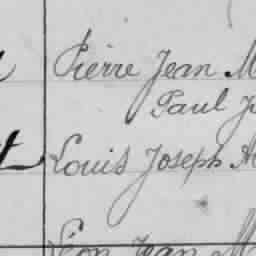 Pierre Jean M
Paul J
Louis Joseph A
Léon Jean M